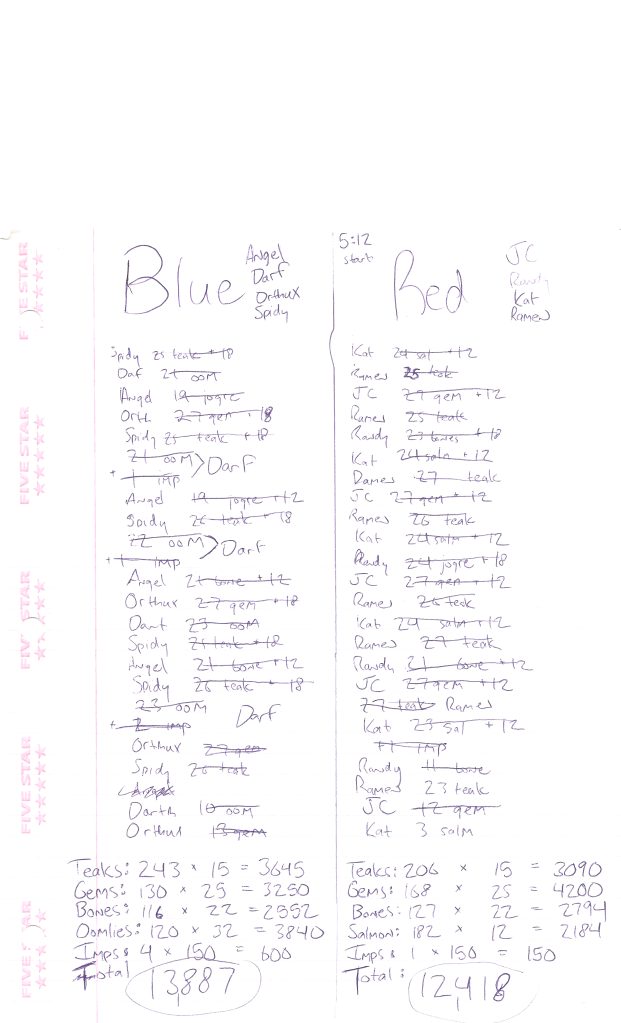 Blue
Angel
Darf
Orthux
Spidy
Spidy 25 teak + 18
Daf 21 OOM
Angel 19 jogre
Orth 27 gem + 18
Spidy 25 teak + 18
21 OOM > Darf
+ 1 imp
Angel 19 jogre + 12
Spidy 26 teak + 18
22 OOM > Darf
+ 1 imp
Angel 21 bone + 12
Orthux 27 gem + 18
Darf 23 OOM
Spidy 25 teak + 18
Angel 21 bone + 12
Spidy 26 teak + 18
23 OOM Darf
+ 2 imp
Orthux 27 gem
Spidy 26 teak
Darth 10 OOM
Orthux 13 gem
Teaks: 243 × 15 = 3645
Gems: 130 × 25 = 3250
Bones: 116 × 22 = 2552
Oomlies: 120 × 32 = 3840
Imps: 4 × 150 = 600
Total 13,887
5:12
start
Red
JC
Randy
Kat
Ramen
Kat 24 sal + 12
Ramen 25 teak
JC 29 gem + 12
Ramen 25 teak
Randy 23 bones + 18
Kat 24 salm + 12
Damen 27 teak
JC 27 gem + 12
Ramen 26 teak
Kat 24 salm + 12
Randy 24 jogre + 18
JC 27 gem + 12
Ramen 26 teak
Kat 24 salm + 12
Ramen 27 teak
Randy 31 bone + 12
JC 27 gem + 12
27 teak Ramen
Kat 23 sal + 12
+1 imp
Randy 11 bone
Ramen 23 teak
JC 12 gem
Kat 3 salm
Teaks: 206 × 15 = 3090
Gems: 168 × 25 = 4200
Bones: 127 × 22 = 2794
Salmon: 182 × 12 = 2184
Imps: 1 × 150 = 150
Total: 12,418
FIVE STAR
FIVE STAR
FIVE STAR
FIVE STAR
FIVE STAR